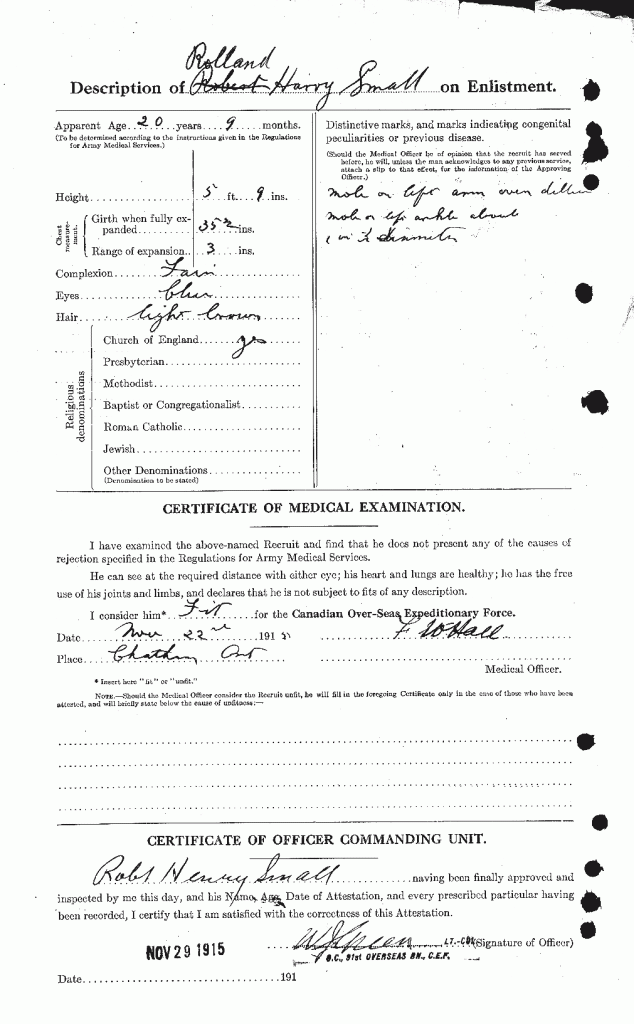 Rolland
Description of Robert Harry Small on Enlistment.
Apparent Age 20 years 9 months.
(To be determined according to the instructions given in the Regulations for Army Medical Services.)
Height 5 ft. 9 ins.
Chest measurement.
Girth when fully expanded 35 1/2 ins.
Range of expansion 3 ins.
Complexion Fair
Eyes blue
Hair light brown
Religious denominations
Church of England yes
Presbyterian
Methodist
Baptist or Congregationalist
Roman Catholic
Jewish
Other Denominations
(Denomination to be stated)
Distinctive marks, and marks indicating congenital
peculiarities or previous disease.
(Should the Medical Officer be of opinion that the recruit has served
before, he will, unless the man acknowledges to any previous service,
attach a slip to that effect, for the information of the Approving
Officer.)
mole on left arm over
mole on left ankle about
in diameter
CERTIFICATE OF MEDICAL EXAMINATION.
I have examined the above-named Recruit and find that he does not present any of the causes of
rejection specified in the Regulations for Army Medical Services.
He can see at the required distance with either eye; his heart and lungs are healthy; he has the free
use of his joints and limbs, and declares that he is not subject to fits of any description.
I consider him* Fit for the Canadian Over-Seas Expeditionary Force.
Date Nov 22nd 1915
F W Hall
Place Chatham Ont
Medical Officer.
* Insert here "fit" or "unfit."
NOTE.—Should the Medical Officer consider the Recruit unfit, he will fill in the foregoing Certificate only in the case of those who have been
attested, and will briefly state below the cause of unfitness:—
CERTIFICATE OF OFFICER COMMANDING UNIT.
Robt Henry Small having been finally approved and
inspected by me this day, and his Name, Age, Date of Attestation, and every prescribed particular having
been recorded, I certify that I am satisfied with the correctness of this Attestation.
LT.-COL. (Signature of Officer)
O.C., 91st OVERSEAS BN., C.E.F.
NOV 29 1915
Date 191